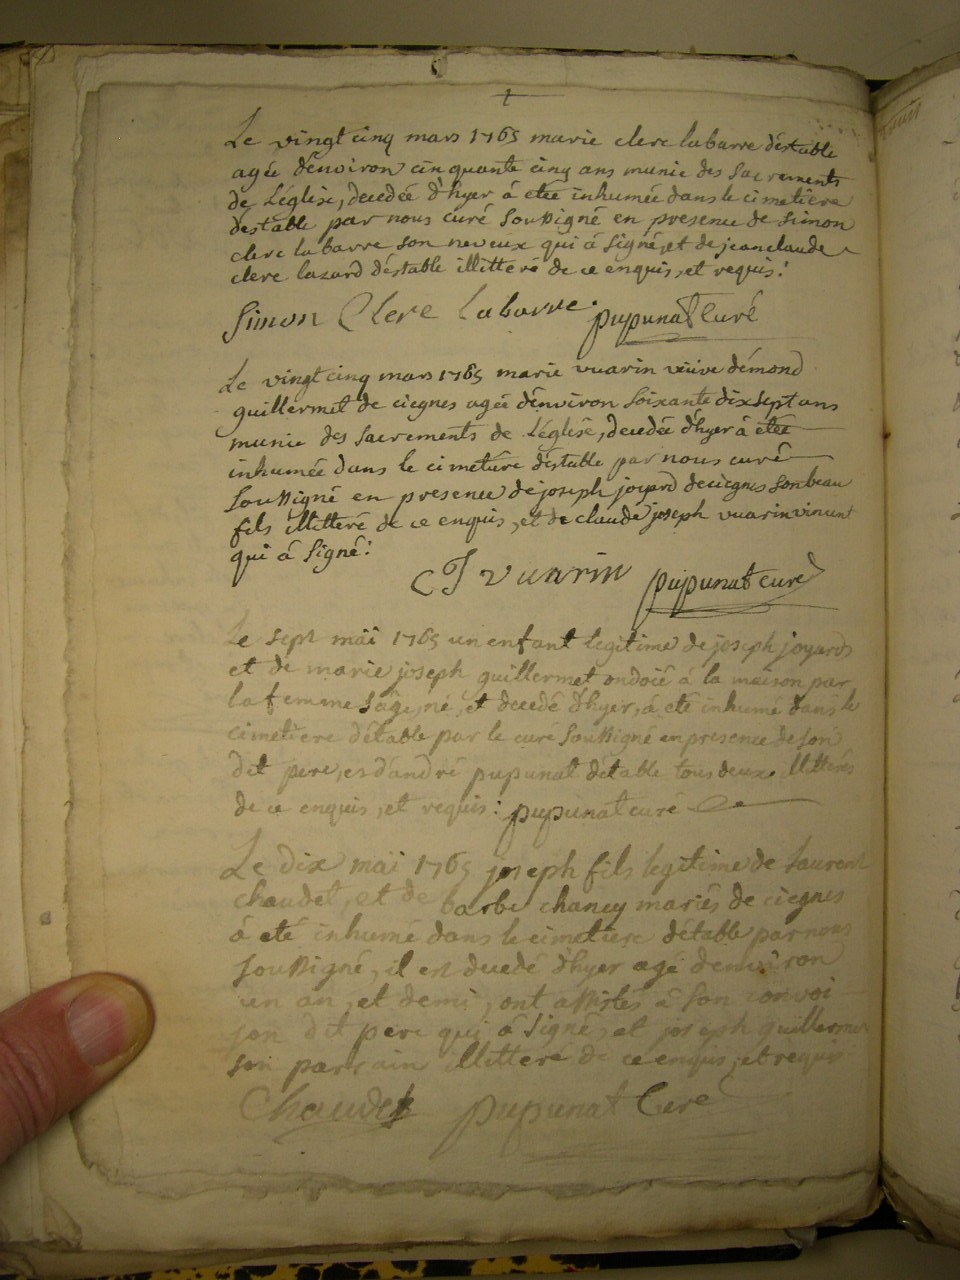 Le vingt cinq mars 1765 marie clerc labarre déstable
agée dénviron cinquante cinq ans munie des sacrements
de Léglise, decedée d'hyer á eté inhumée dans le cimetiere
destable par nous curé soussigné en presence de simon
clerc labarre son neveux qui á signé, et de jean claude
clerc lazard déstable illitteré de ce enquis, et requis:
Simon Clerc labarre. pupunat Curé
Le vingt cinq mars 1765 marie vuarin veuve démond
guillermet de ciegnes agée dénviron soixante dix sept ans
munie des sacrements de Léglise, decedée d'hyer á eteé
inhumée dans le cimetiere déstable par nous curé
soussigné en presence de joseph joyard de ciegnes son beau
fils illitteré de ce enquis, et de claude joseph vuarin
qui á signé:
CJ vuarin pupunat curé
Le sept mai 1765 un enfant legitime de joseph joyard
et de marie joseph guillermet ondoié á la maison par
la femme sage, né, et decedé d'hyer, á eté inhumé dans le
cimetiere détable par le curé soussigné en presence de son
dit pere, et d'andré pupunat détable tous deux illitterés
de ce enquis, et requis: pupunat curé
Le dix mai 1765 joseph fils legitime de laurent
chaudet, et de barbe chaney mariés de ciegnes
á eté inhumé dans le cimetiere détable par nous
soussigné, il est decedé d'hyer agé denviron
un an, et demi, ont assistés á son convoi
son dit pere qui á signé, et joseph guillermet
son parrain illitteré de ce enquis, et requis
Chaudet pupunat Curé